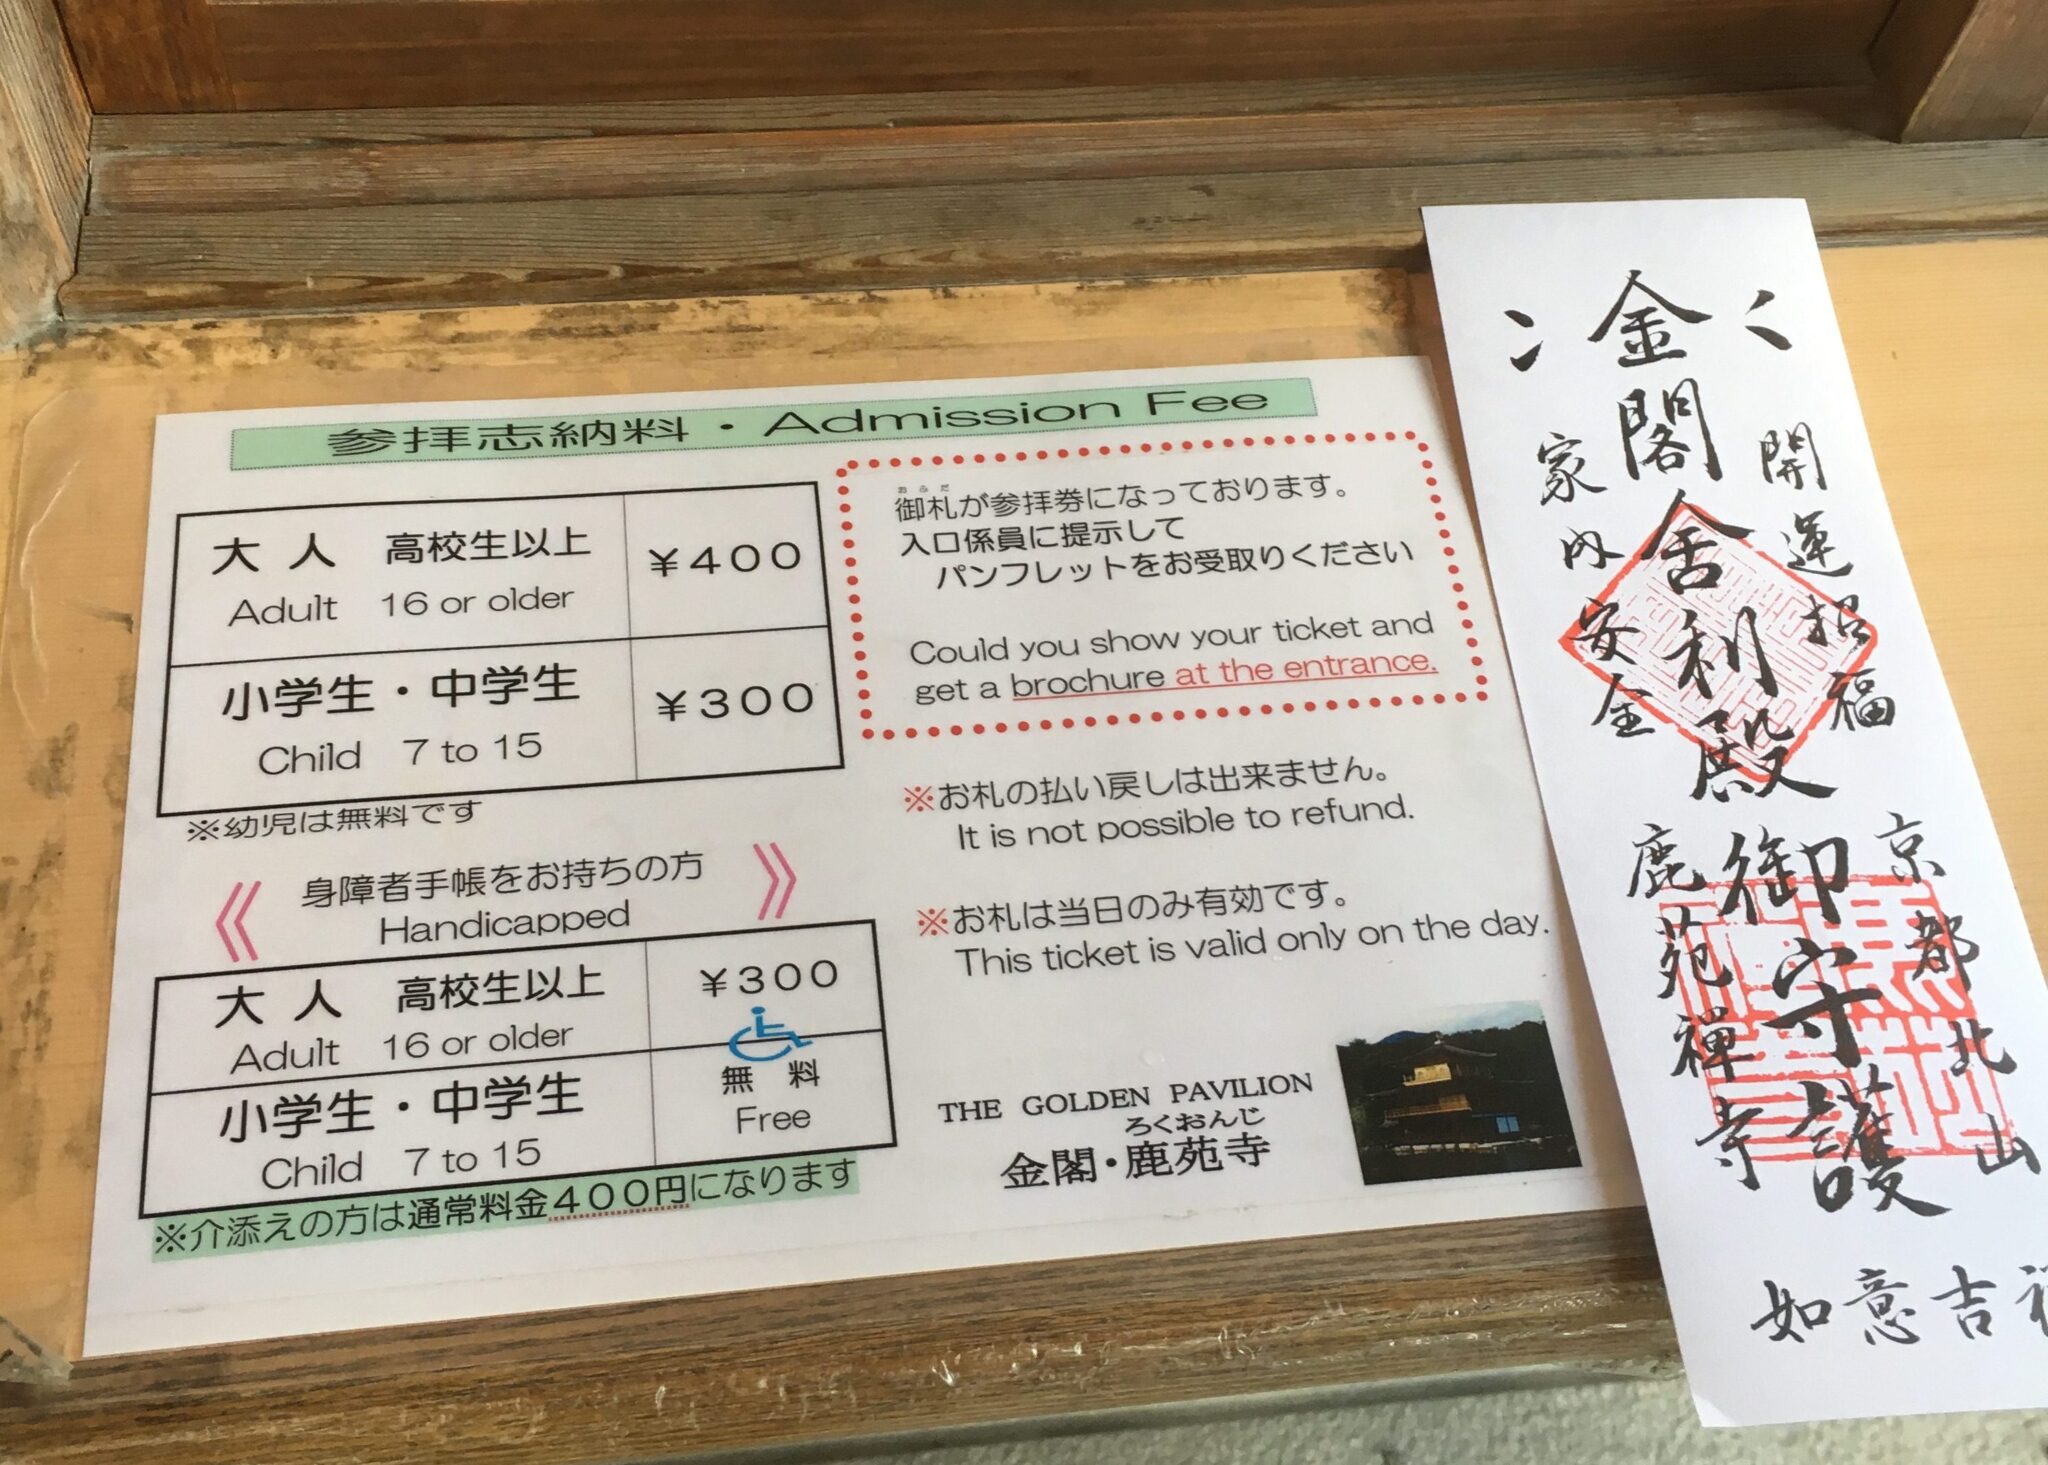 参拝志納料・Admission Fee
大 人 高校生以上 ¥400
Adult 16 or older
小学生・中学生 ¥300
Child 7 to 15
※幼児は無料です
《 身障者手帳をお持ちの方 》
Handicapped
大 人 高校生以上 ¥300
Adult 16 or older
小学生・中学生 無 料
Child 7 to 15 Free
※介添えの方は通常料金400円になります
おふだ
御札が参拝券になっております。
入口係員に提示して
パンフレットをお受取りください
Could you show your ticket and
get a brochure at the entrance.
※お札の払い戻しは出来ません。
It is not possible to refund.
※お札は当日のみ有効です。
This ticket is valid only on the day.
THE GOLDEN PAVILION
ろくおんじ
金閣・鹿苑寺
開運招福
金閣舎利殿御守護
家内安全
京都北山
鹿苑禅寺
如意吉